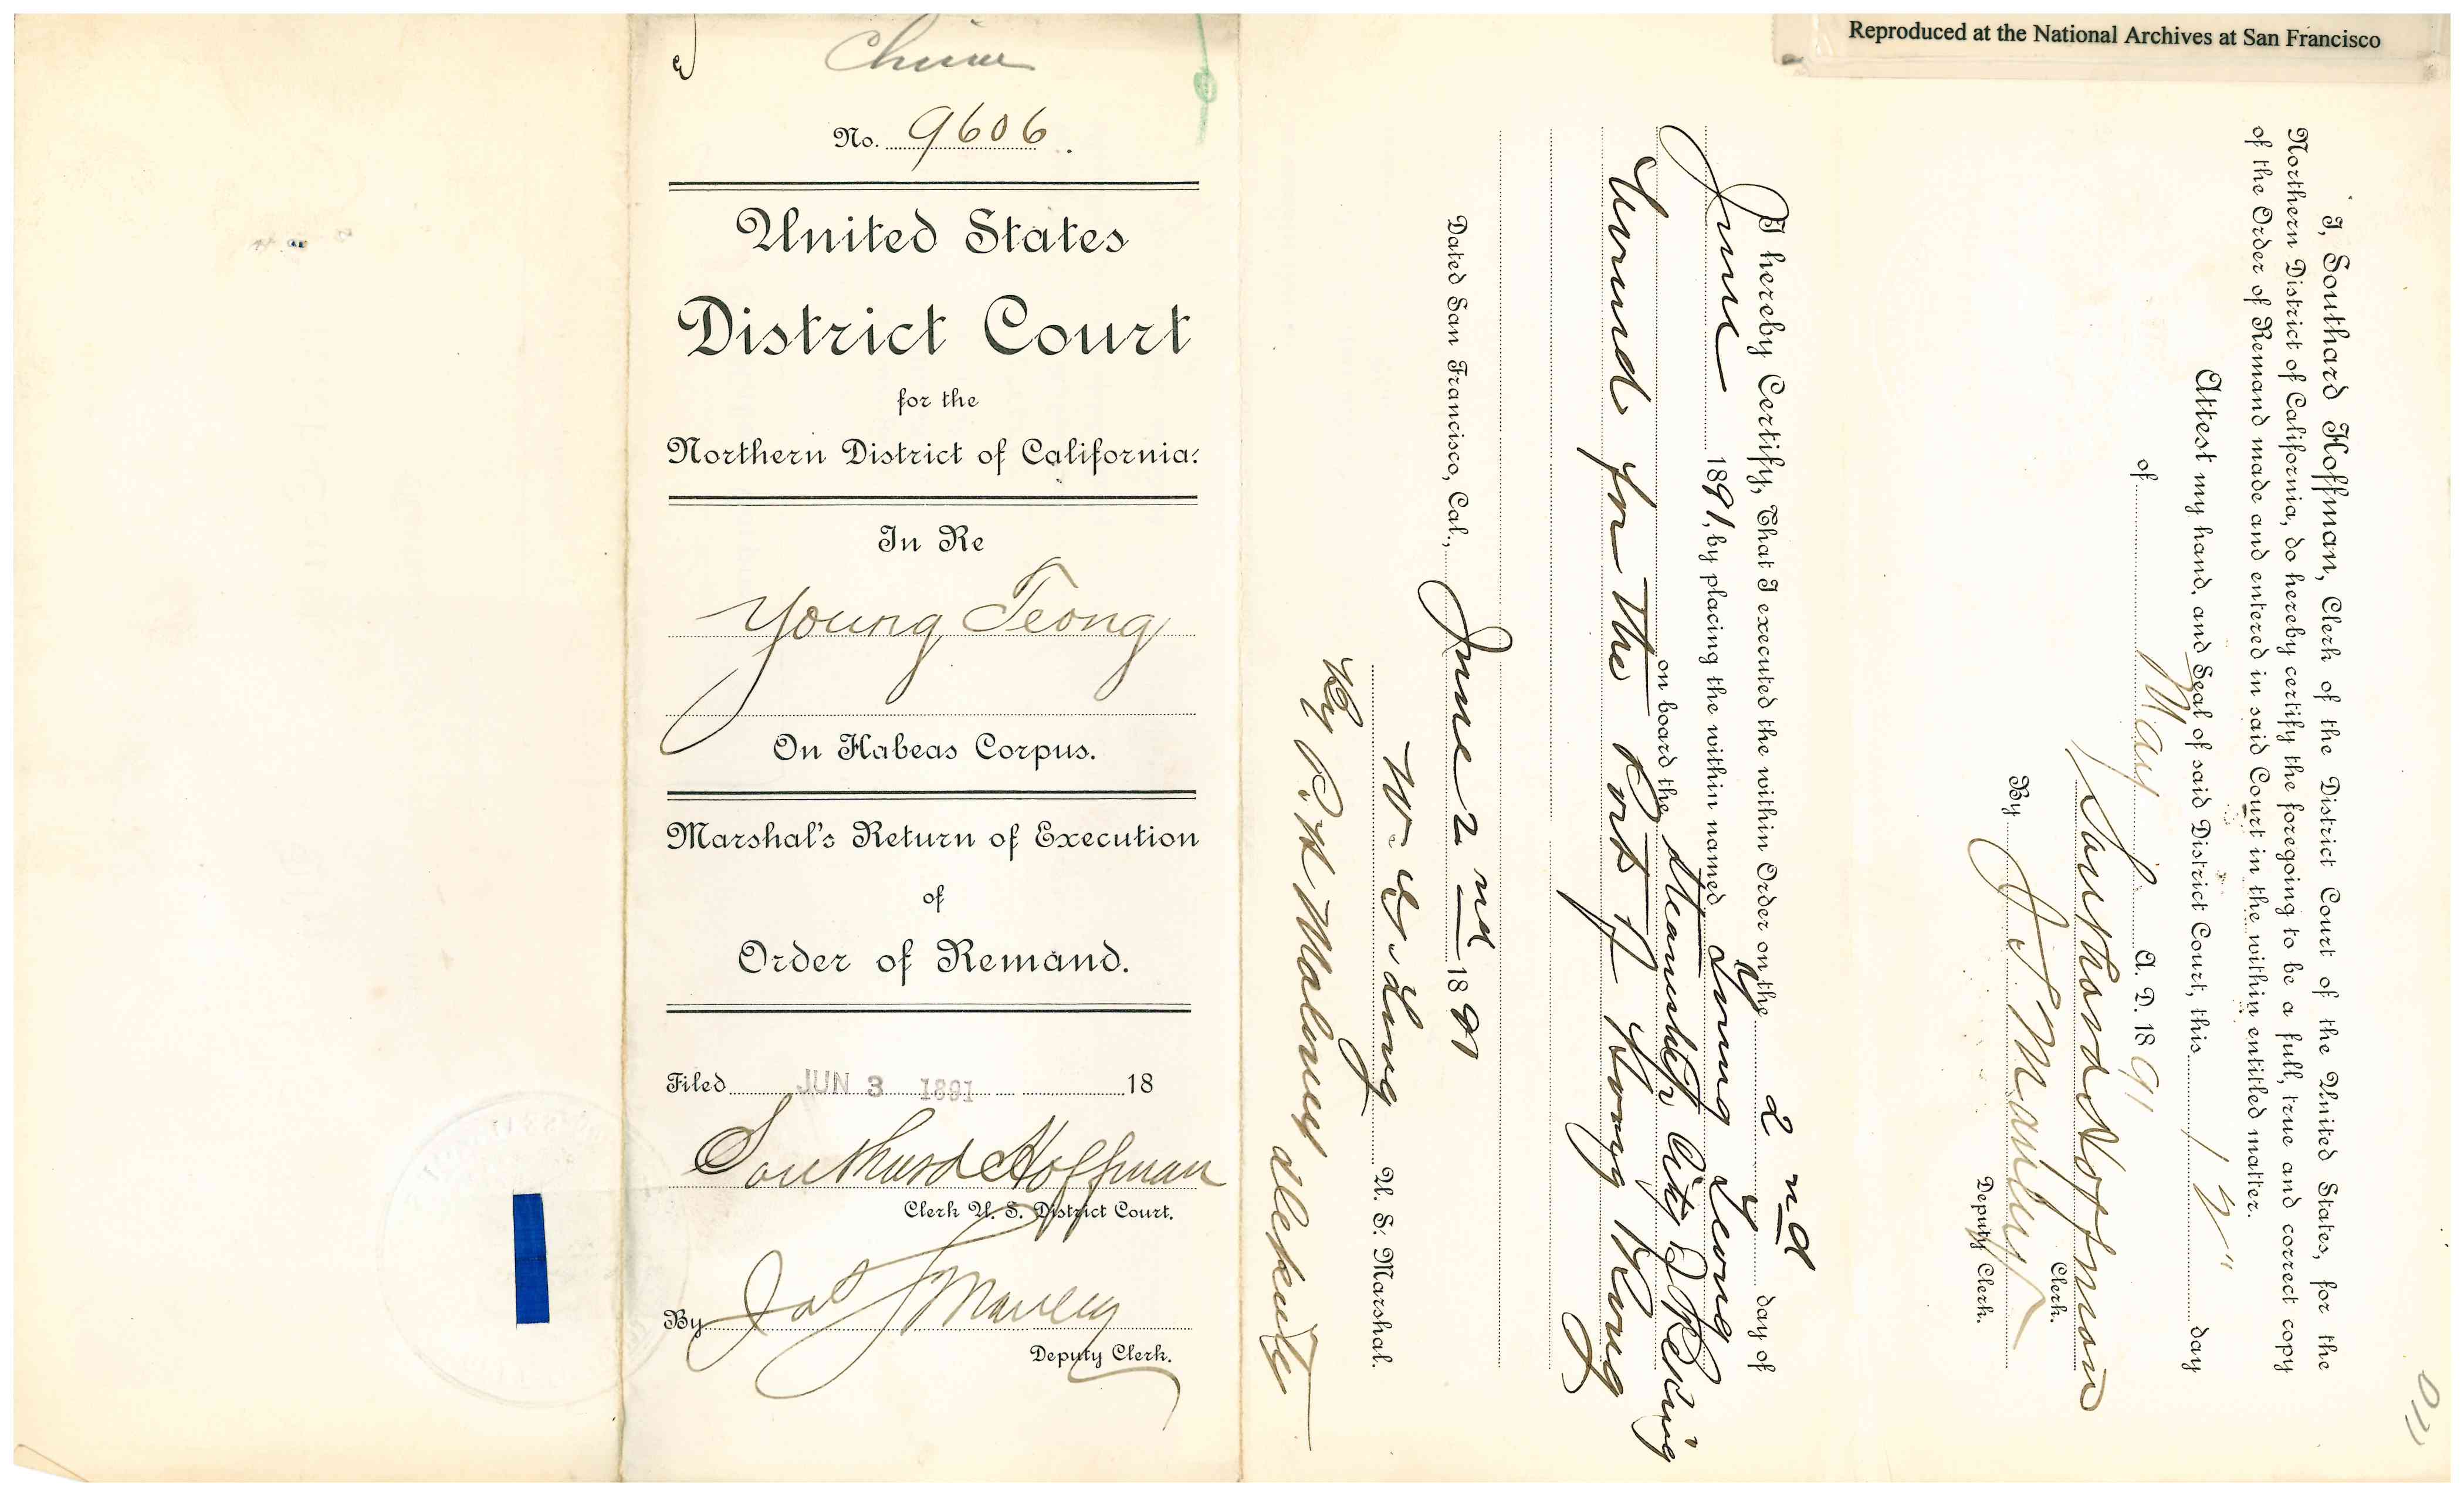 Reproduced at the National Archives at San Francisco
No. 9606.
United States
District Court
for the
Northern District of California.
In Re
Young Teong
On Habeas Corpus.
Marshal's Return of Execution
of
Order of Remand.
Filed JUN 3 1891 18
Southard Hoffman
Clerk U. S. District Court.
By Jas S Manley
Deputy Clerk.
I hereby Certify, That I executed the within Order on the 2nd day of
June 1891, by placing the within named Young Teong
on board the Steamship City of Peking
bound for the Port of Hong Kong
Dated San Francisco, Cal., June 2nd 1891
W. G. Long U. S. Marshal.
By Maloney deputy
I, Southard Hoffman, Clerk of the District Court of the United States, for the
Northern District of California, do hereby certify the foregoing to be a full, true and correct copy
of the Order of Remand made and entered in said Court in the within entitled matter.
Attest my hand, and Seal of said District Court, this 12" day
of May A. D. 1891
Southard Hoffman
Clerk.
By J. S. Manley
Deputy Clerk.